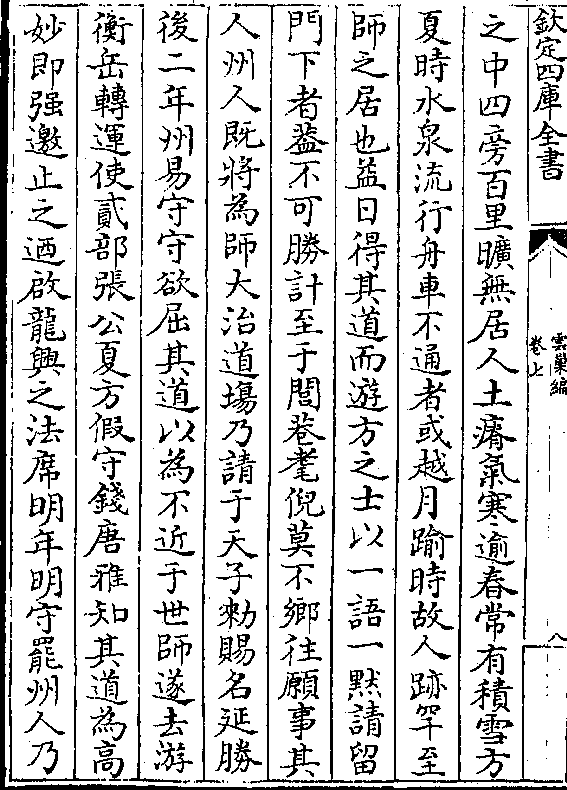 欽定四庫全書
雲巢編
卷七
八
之中四旁百里曠無居人土瘠氣寒逾春常有積雪方
夏時水泉流行舟車不通者或越月踰時故人跡罕至
師之居也益日得其道而游方之士以一語一黙請留
門下者葢不可勝計至于閭巷耄倪莫不鄉往願事其
人州人既將為師大治道塲乃請于天子勑賜名延勝
後二年州易守守欲屈其道以為不近于世師遂去游
衡岳轉運使貳部張公夏方假守錢唐雅知其道為高
妙即强邀止之迺啟龍興之法席明年明守罷州人乃